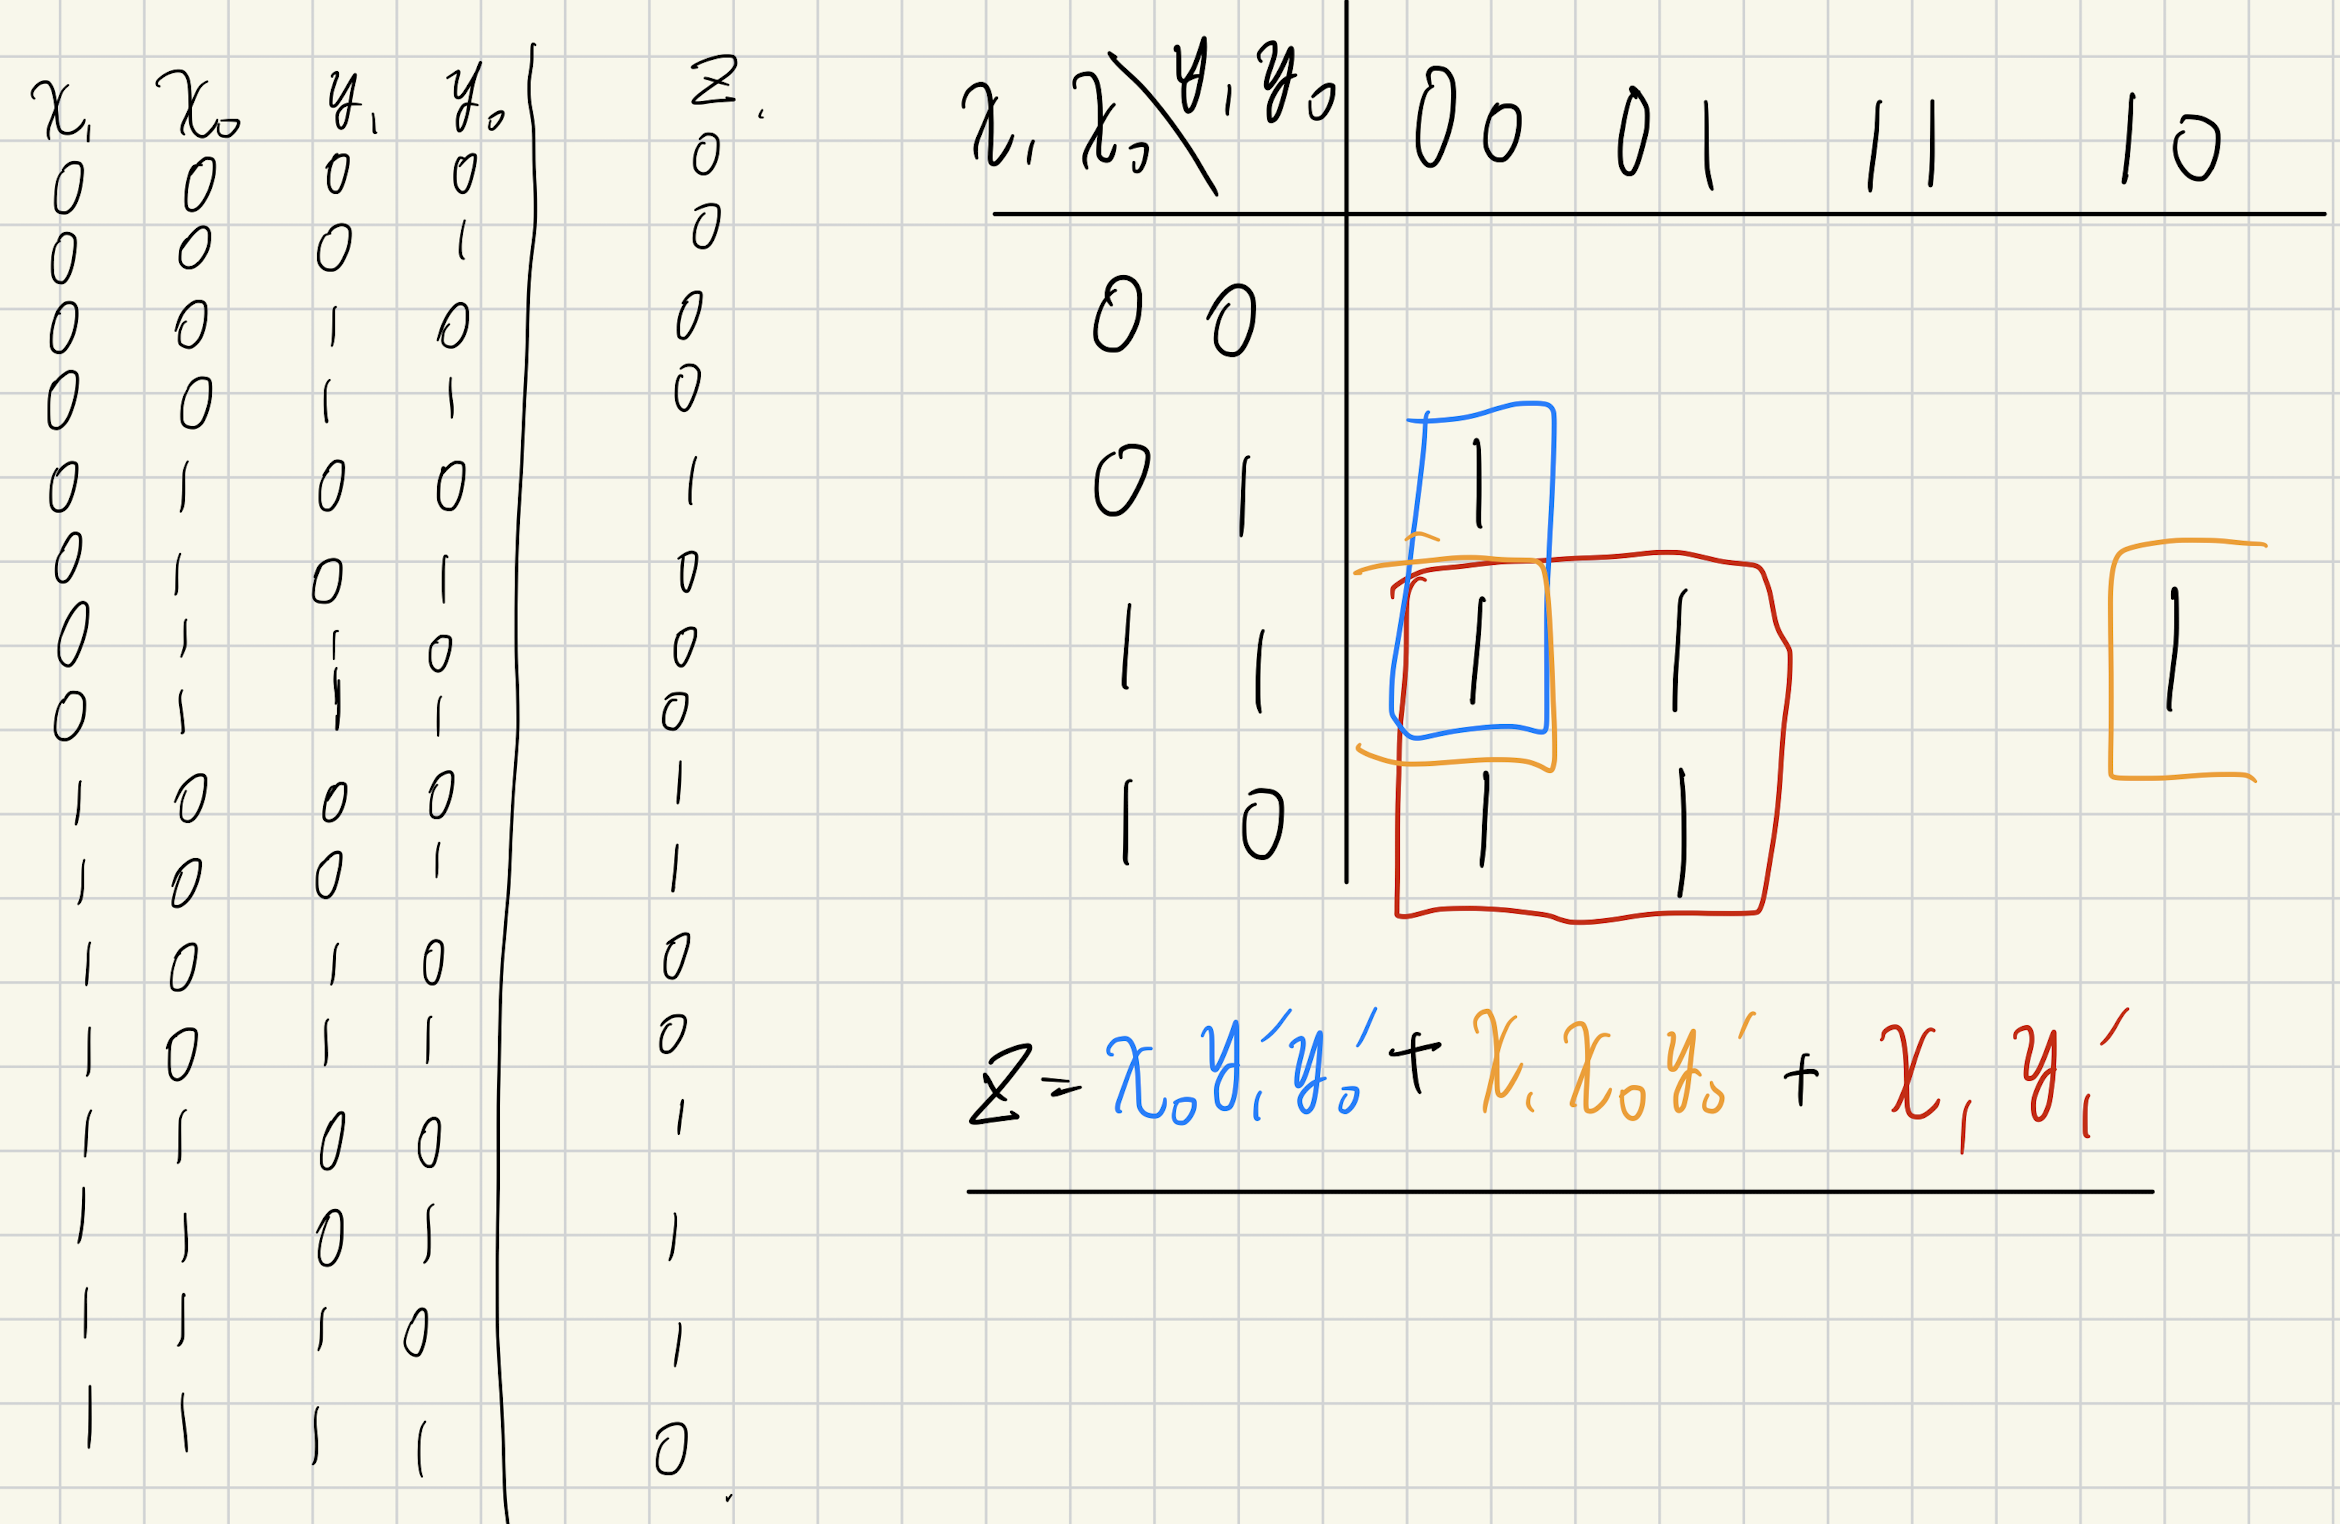 x₁ x₀ y₁ y₀ z
0 0 0 0 0
0 0 0 1 0
0 0 1 0 0
0 0 1 1 0
0 1 0 0 1
0 1 0 1 0
0 1 1 0 0
0 1 1 1 0
1 0 0 0 1
1 0 0 1 1
1 0 1 0 0
1 0 1 1 0
1 1 0 0 1
1 1 0 1 1
1 1 1 0 1
1 1 1 1 0
x₁x₀ \ y₁y₀ 00 01 11 10
00
01 1
11 1 1 1
10 1 1
z = x₀y₁'y₀' + x₁x₀y₀' + x₁y₁'